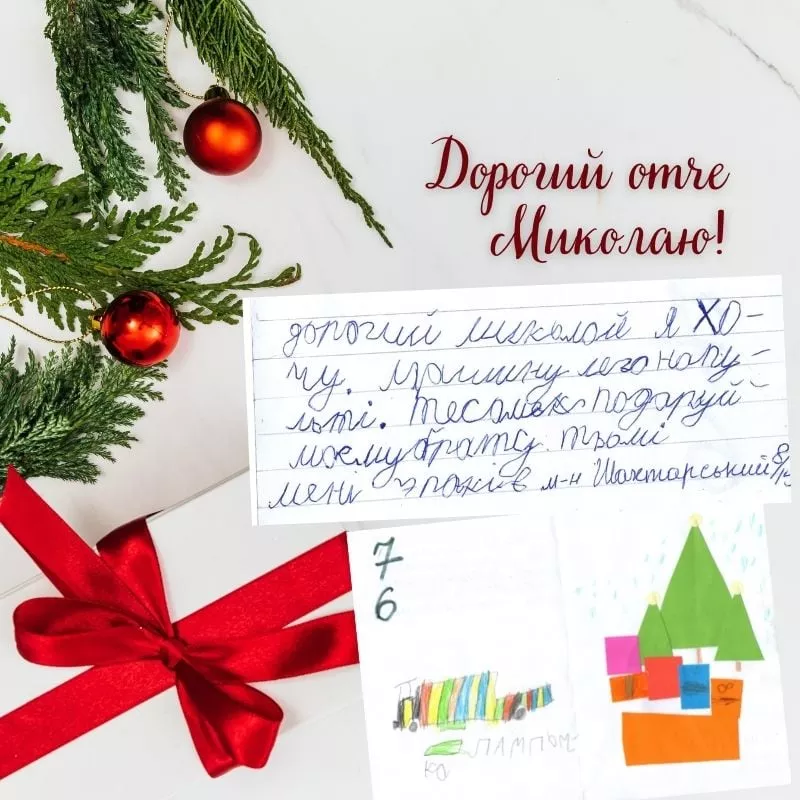 Дорогий отче
Миколаю!
дорогий миколой я ХО-
чу. машину лего на пу-
льті. подаруй
моєму брату. тьомі
мені 7 років м-н Шахтарський
7
6
ЛАМПОЧ-
КА
8